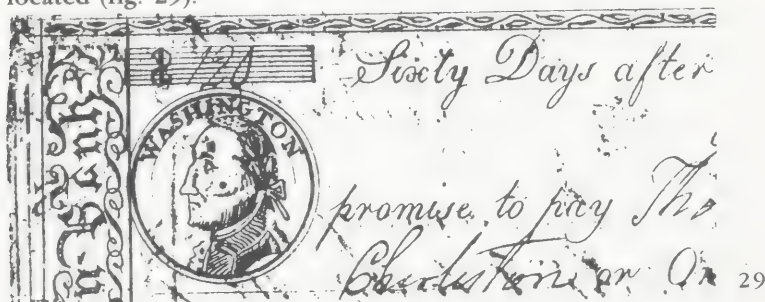 located (fig. 29).
$ 120 Sixty Days after
WASHINGTON
promise to pay Tho
Charlestown or Or
29
Bank